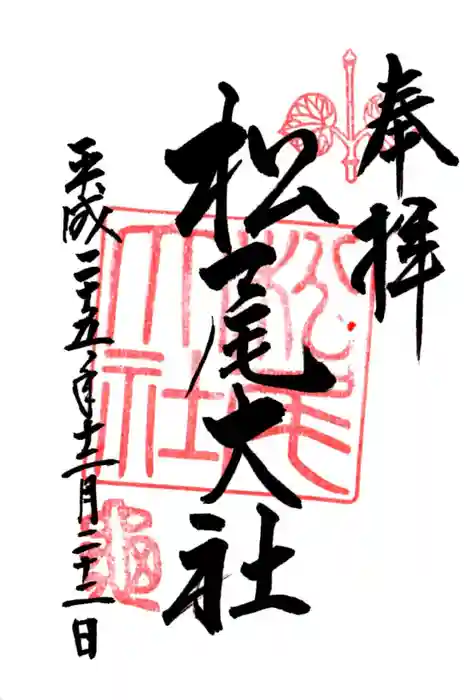 奉拝
松尾大社
平成二十五年十二月二十二日
松尾大社